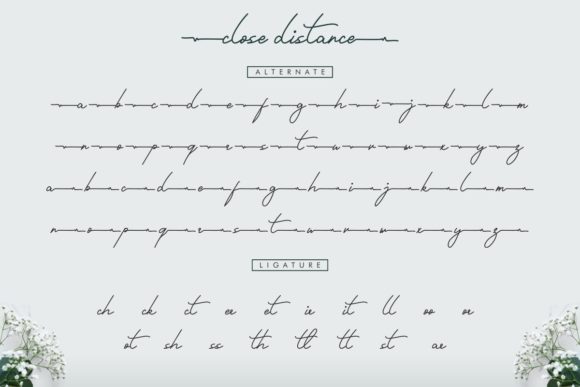 close distance
ALTERNATE
a b c d e f g h i j k l m
n o p q r s t u v w x y z
a b c d e f g h i j k l m
n o p q r s t u v w x y z
LIGATURE
ch ck ct er et ir it ll oo or
ot sh ss th tl tt st ar